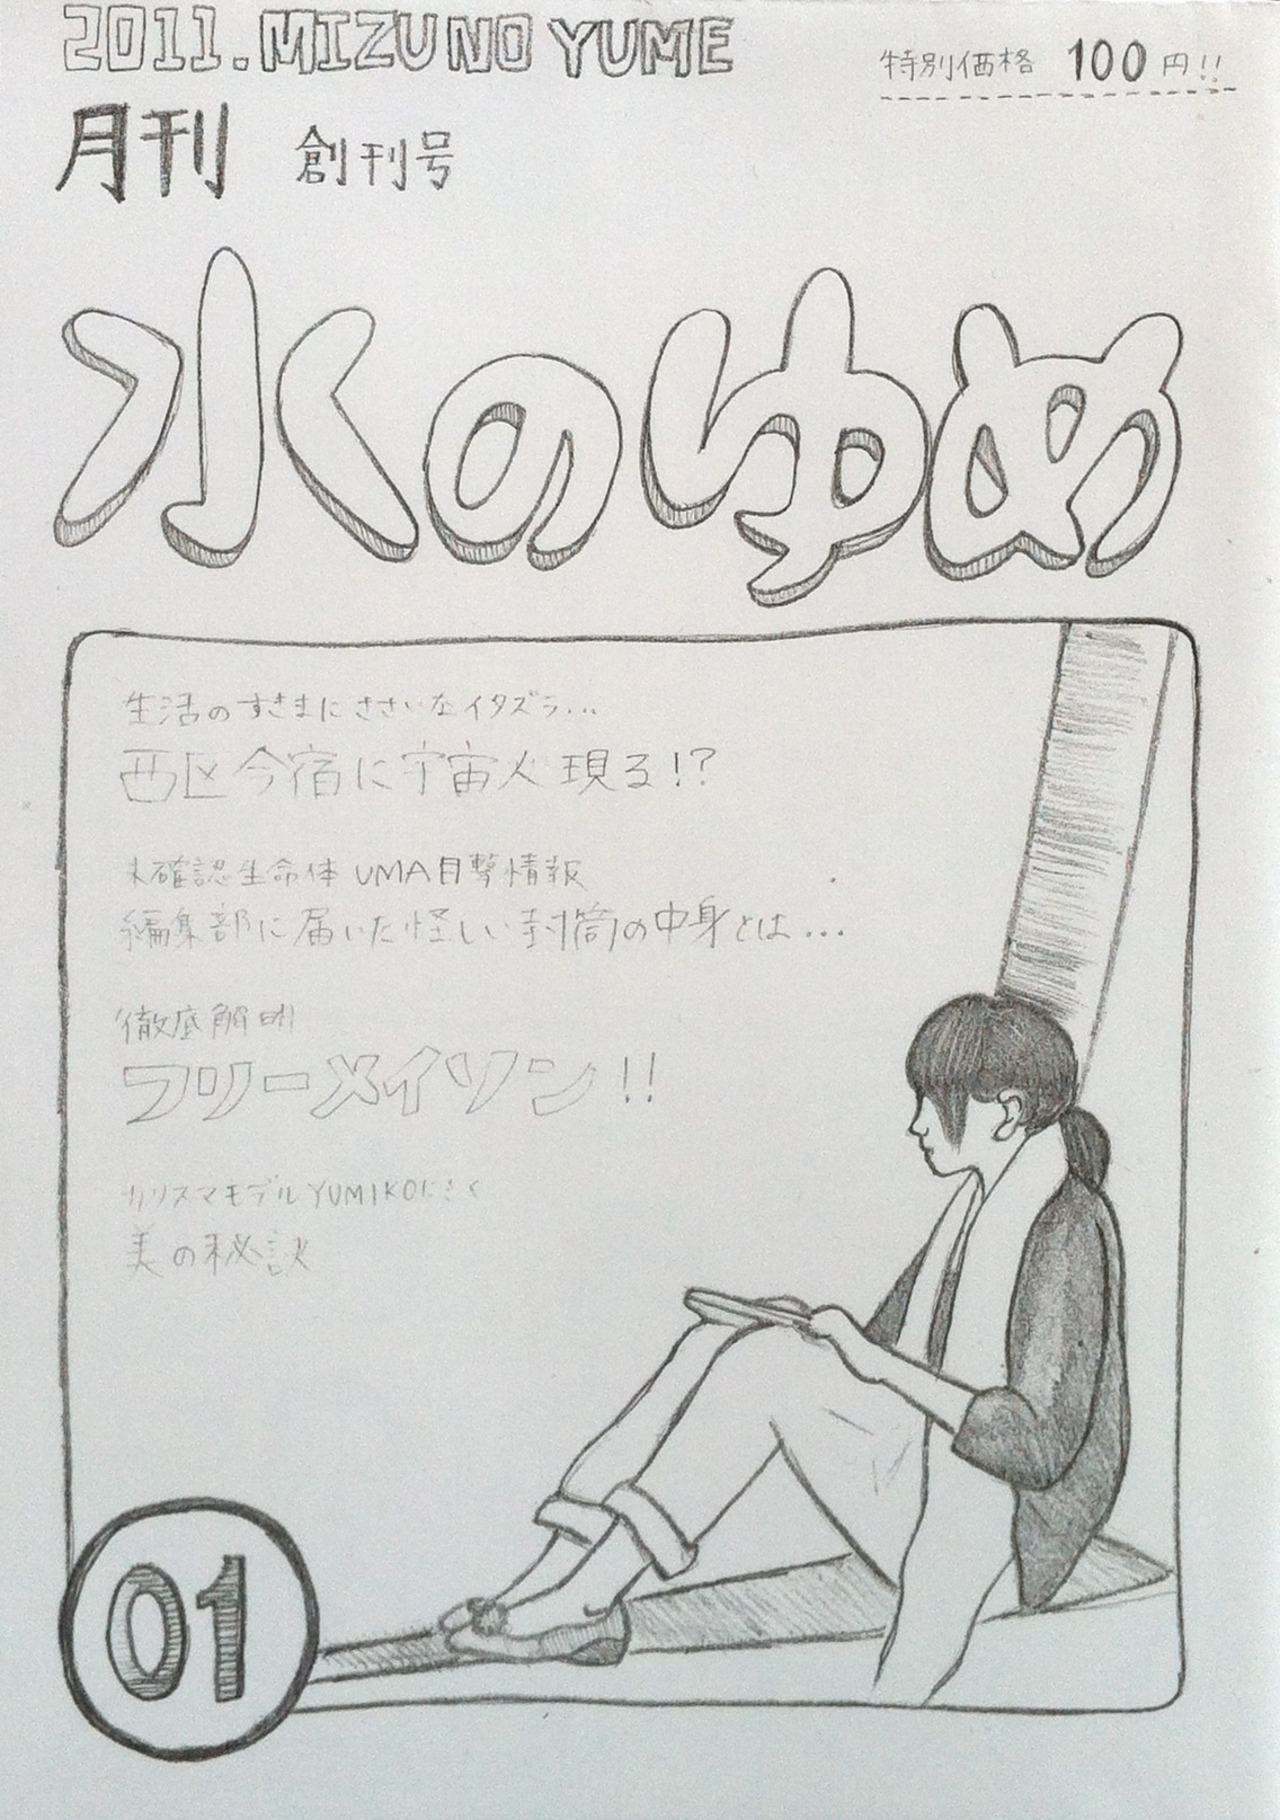 2011.MIZU NO YUME
特別価格 100円!!
月刊 創刊号
水のゆめ
生活のすきまにささいなイタズラ...
西区今宿に宇宙人現る!?
未確認生命体 UMA目撃情報
編集部に届いた怪しい封筒の中身とは...
徹底解明
フリーメイソン!!
カリスマモデルYUMIKOにきく
美の秘訣
01